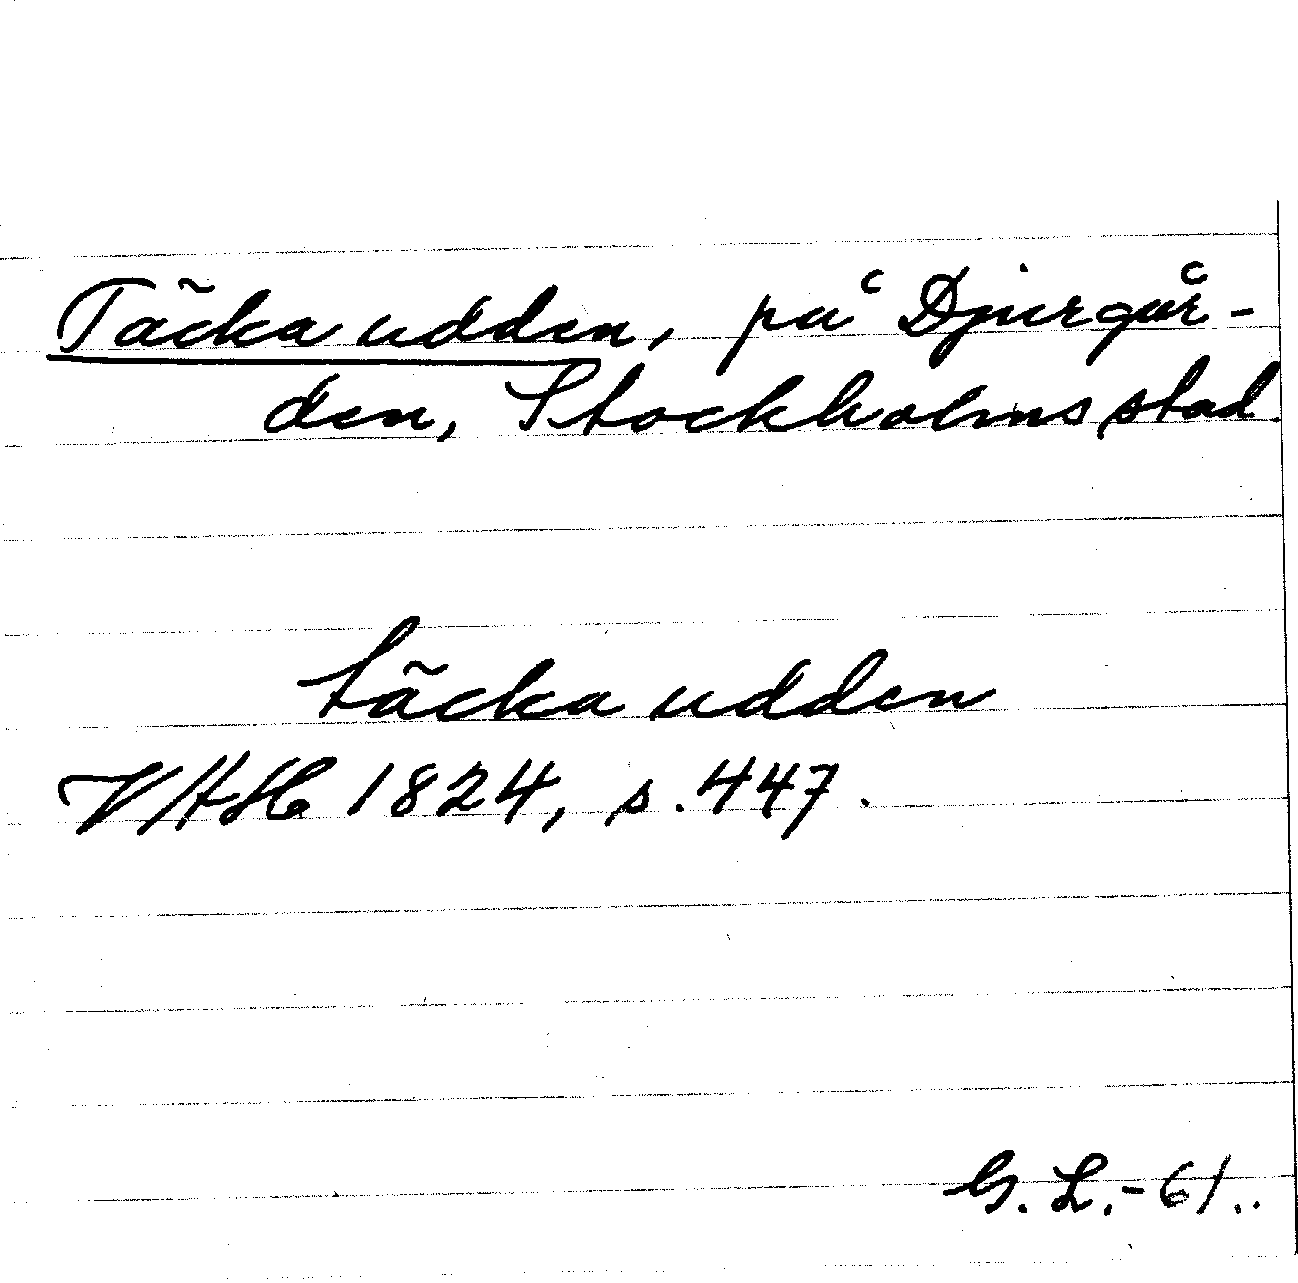 Täcka udden, på Djurgår-
den, Stockholms stad.
täcka udden
VAH 1824, s. 447.
G. L. - 61..